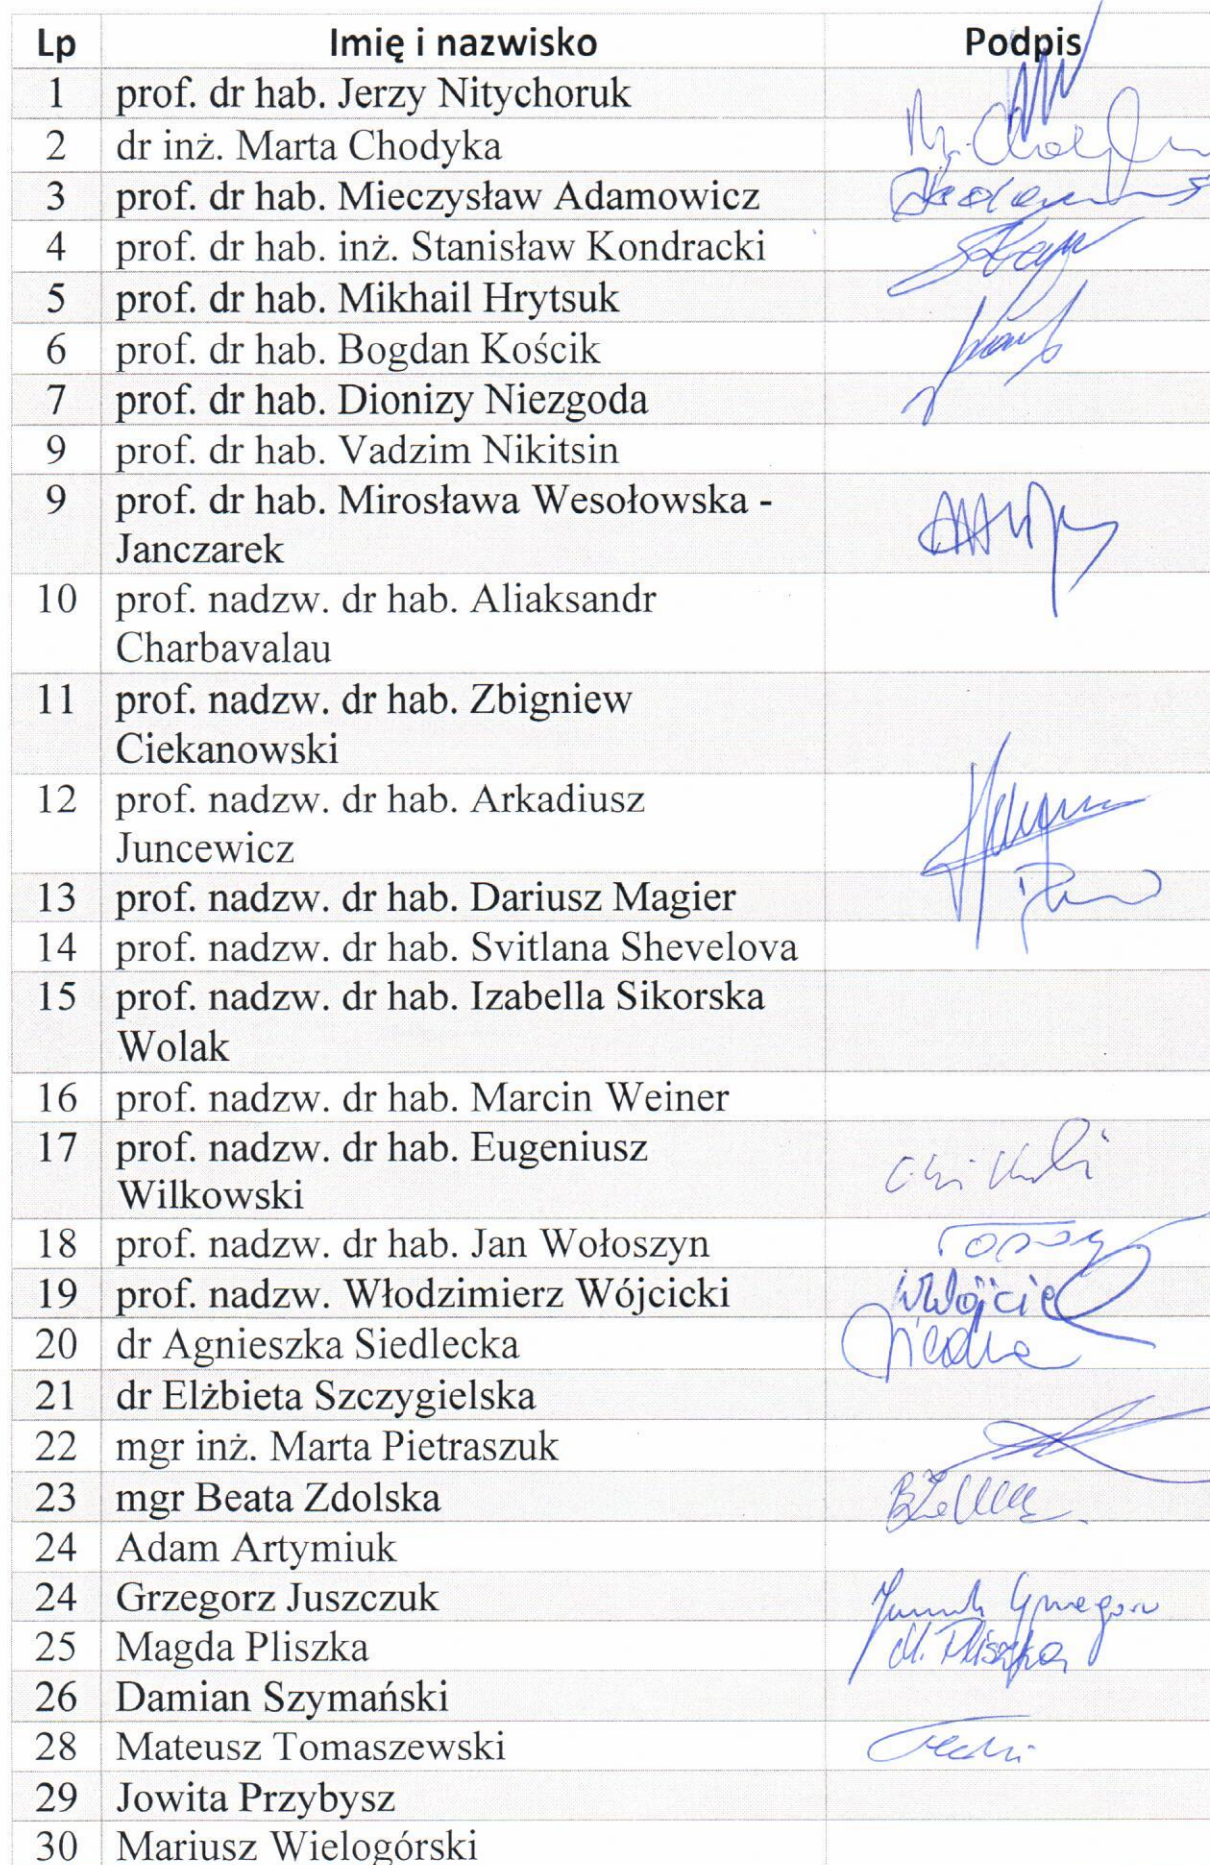 Lp Imię i nazwisko Podpis
1 prof. dr hab. Jerzy Nitychoruk
2 dr inż. Marta Chodyka
3 prof. dr hab. Mieczysław Adamowicz
4 prof. dr hab. inż. Stanisław Kondracki
5 prof. dr hab. Mikhail Hrytsuk
6 prof. dr hab. Bogdan Kościk
7 prof. dr hab. Dionizy Niezgoda
9 prof. dr hab. Vadzim Nikitsin
9 prof. dr hab. Mirosława Wesołowska -
Janczarek
10 prof. nadzw. dr hab. Aliaksandr
Charbavalau
11 prof. nadzw. dr hab. Zbigniew
Ciekanowski
12 prof. nadzw. dr hab. Arkadiusz
Juncewicz
13 prof. nadzw. dr hab. Dariusz Magier
14 prof. nadzw. dr hab. Svitlana Shevelova
15 prof. nadzw. dr hab. Izabella Sikorska
Wolak
16 prof. nadzw. dr hab. Marcin Weiner
17 prof. nadzw. dr hab. Eugeniusz
Wilkowski
18 prof. nadzw. dr hab. Jan Wołoszyn
19 prof. nadzw. Włodzimierz Wójcicki
20 dr Agnieszka Siedlecka
21 dr Elżbieta Szczygielska
22 mgr inż. Marta Pietraszuk
23 mgr Beata Zdolska
24 Adam Artymiuk
24 Grzegorz Juszczuk
25 Magda Pliszka M. Pliszka
26 Damian Szymański
28 Mateusz Tomaszewski
29 Jowita Przybysz
30 Mariusz Wielogórski